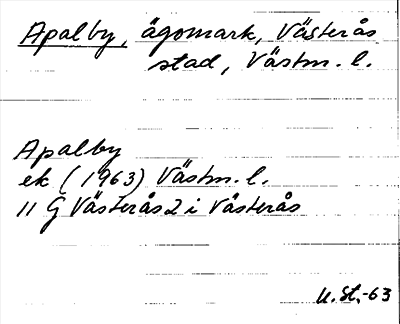 Apalby, ägomark, Västerås
stad, Västm. l.
Apalby
ek (1963) Västm. l.
11 G Västerås 2 i Västerås
U.St.-63